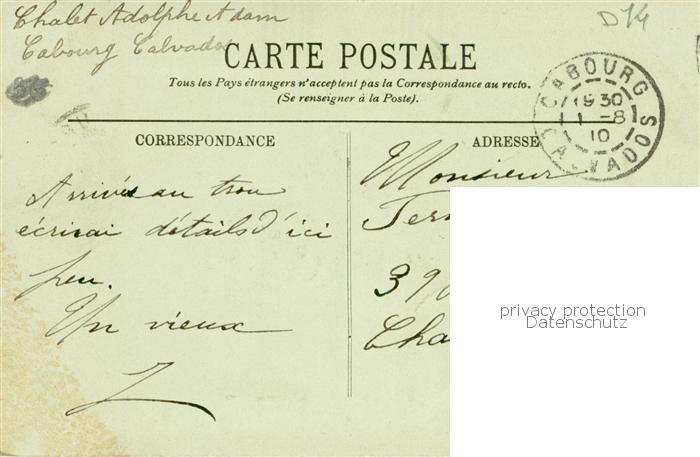 Chalet Adolphe Adam
Cabourg Calvados
D14
CARTE POSTALE
Tous les Pays étrangers n'acceptent pas la Correspondance au recto.
(Se renseigner à la Poste).
CABOURG
19 30
1 -8
10
CALVADOS
CORRESPONDANCE
ADRESSE
Arrivés au trou
écrirai détails d'ici
peu.
Un vieux
Monsieur
Ter
390
Cha
privacy protection
Datenschutz